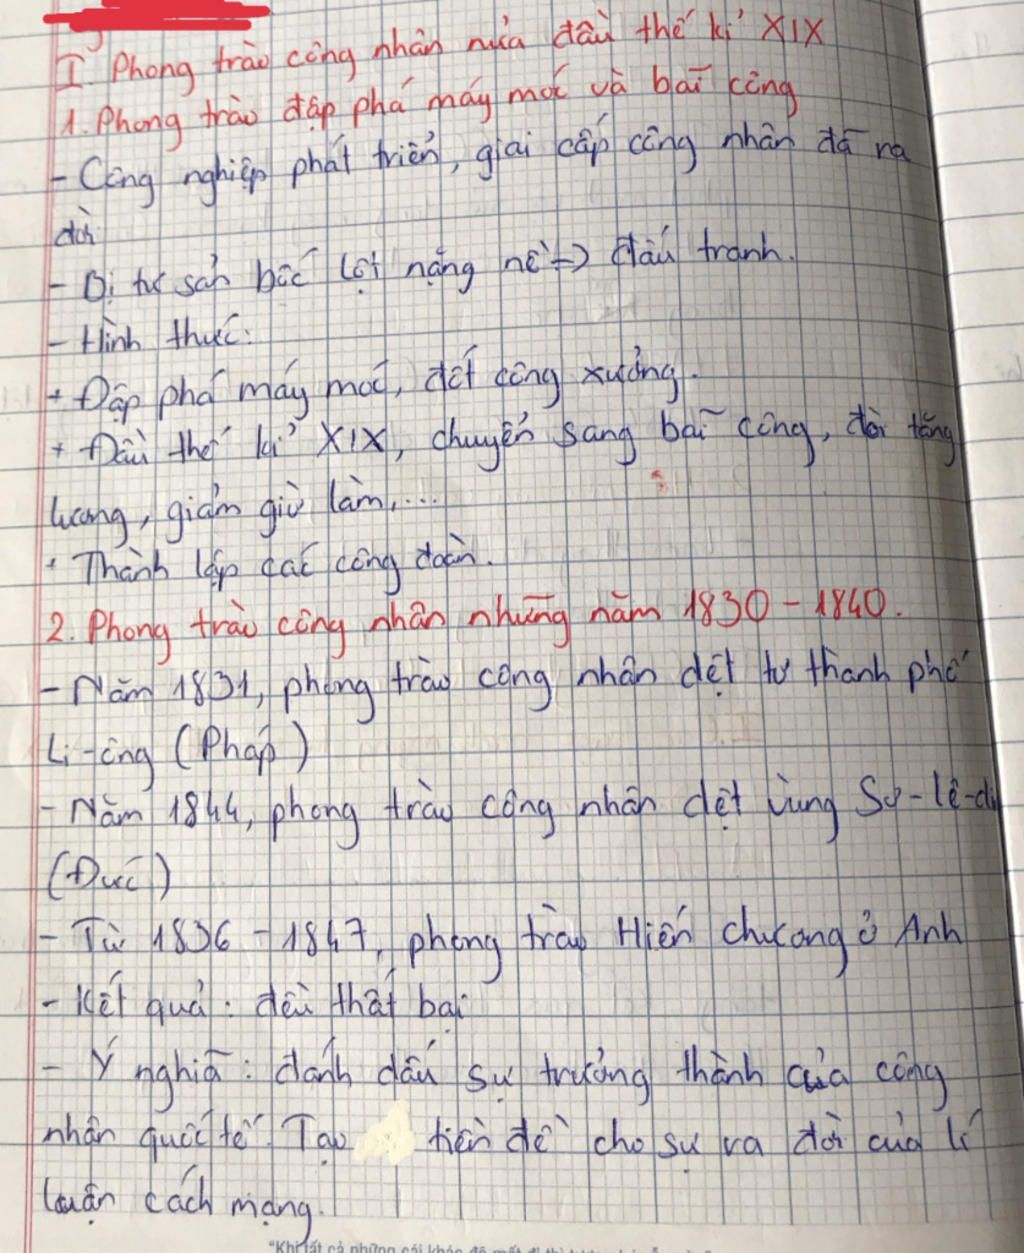 I. Phong trào công nhân nửa đầu thế kỉ XIX
1. Phong trào đập phá máy móc và bãi công
- Công nghiệp phát triển, giai cấp công nhân đã ra
đời
- Bị tư sản bóc lột nặng nề -> đấu tranh.
- Hình thức:
+ Đập phá máy móc, đốt công xưởng.
+ Đầu thế kỉ XIX, chuyển sang bãi công, đòi tăng
lương, giảm giờ làm,...
+ Thành lập các công đoàn.
2. Phong trào công nhân những năm 1830 - 1840.
- Năm 1831, phong trào công nhân dệt tơ thành phố
Li-ông (Pháp)
- Năm 1844, phong trào công nhân dệt vùng Sơ-lê-di
(Đức)
- Từ 1836 - 1847, phong trào Hiến chương ở Anh
- Kết quả: đều thất bại
- Ý nghĩa: đánh dấu sự trưởng thành của công
nhân quốc tế. Tạo tiền đề cho sự ra đời của lí
luận cách mạng.
"Khi tất cả những cái khác đã mất đi thì